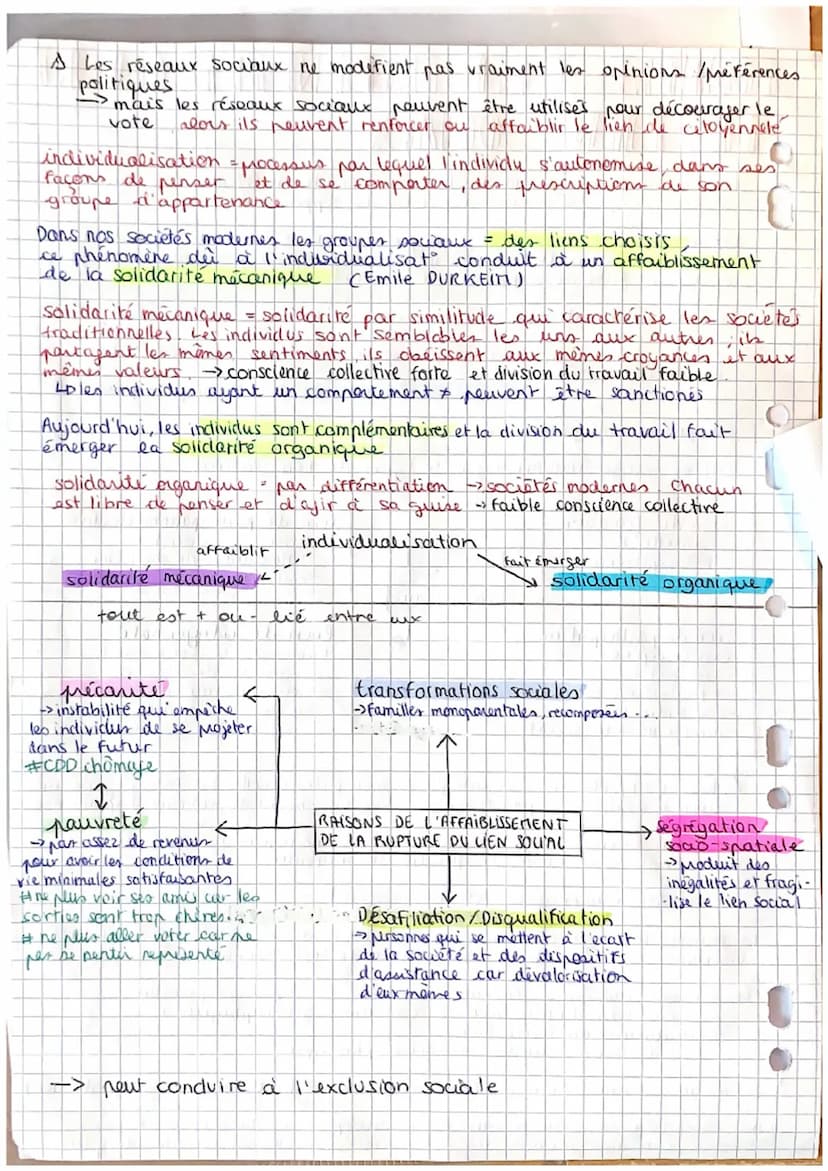 ⚠ Les réseaux sociaux ne modifient pas vraiment les opinions /préférences
politiques
→ mais les réseaux sociaux peuvent être utilisés pour décourager le
vote alors ils peuvent renforcer ou affaiblir le lien de citoyenneté
individualisation = processus par lequel l'individu s'autonomise, dans ses
façons de penser et de se comporter, des prescriptions de son
groupe d'appartenance
Dans nos sociétés modernes les groupes sociaux = des liens choisis,
ce phénomène dû à l'individualisat° conduit à un affaiblissement
de la solidarité mécanique (Emile DURKEIM)
solidarité mécanique = solidarité par similitude qui caractérise les sociétés
traditionnelles. Les individus sont semblables les uns aux autres, ils
partagent les mêmes sentiments, ils obéissent aux mêmes croyances et aux
mêmes valeurs. → conscience collective forte et division du travail faible.
↳ les individus ayant un comportement ≠ peuvent être sanctionés
Aujourd'hui, les individus sont complémentaires et la division du travail fait
émerger la solidarité organique
solidarité organique = par différentiation → sociétés modernes Chacun
est libre de penser et d'agir à sa guise → faible conscience collective
individualisation
affaiblit
fait émerger
solidarité mécanique
solidarité organique
tout est + ou - lié entre eux
précarité
→ instabilité qui empêche
les individus de se projeter
dans le futur
#CDD chômage
pauvreté
→ pas assez de revenus
pour avoir les conditions de
vie minimales satisfaisantes
# ne plus voir ses amis car les
sorties sont trop chères
# ne plus aller voter car ne
pas se sentir représenté
transformations sociales
→ familles monoparentales, recomposées ...
RAISONS DE L'AFFAIBLISSEMENT
DE LA RUPTURE DU LIEN SOCIAL
ségrégation
socio-spatiale
→ produit des
inégalités et fragi-
-lise le lien social
Désafiliation / Disqualification
→ personnes qui se mettent à l'écart
de la société et des dispositifs
d'assistance car dévalorisation
d'eux mêmes
→ peut conduire à l'exclusion sociale